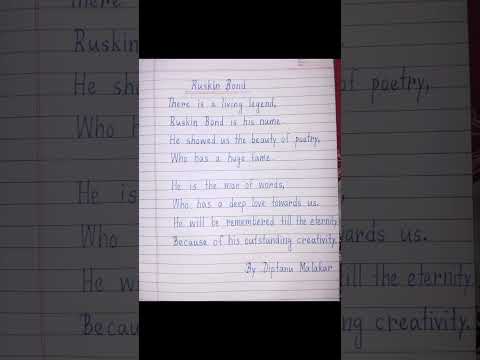 Ruskin Bond
There is a living legend,
Ruskin Bond is his name.
He showed us the beauty of poetry,
Who has a huge fame.
He is the man of words,
Who has a deep love towards us.
He will be remembered till the eternity
Because of his outstanding creativity.
By Diptanu Malakar